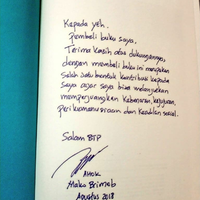 Kepada yth.
Pembeli buku saya.
Terima kasih atas dukungannya,
dengan membeli buku ini merupakan
salah satu bentuk kontribusi kepada
saya agar saya bisa melanjutkan
memperjuangkan kebenaran, kejujuran,
perikemanusiaan dan keadilan sosial.
Salam BTP
AHOK
Mako Brimob
Agustus 2018